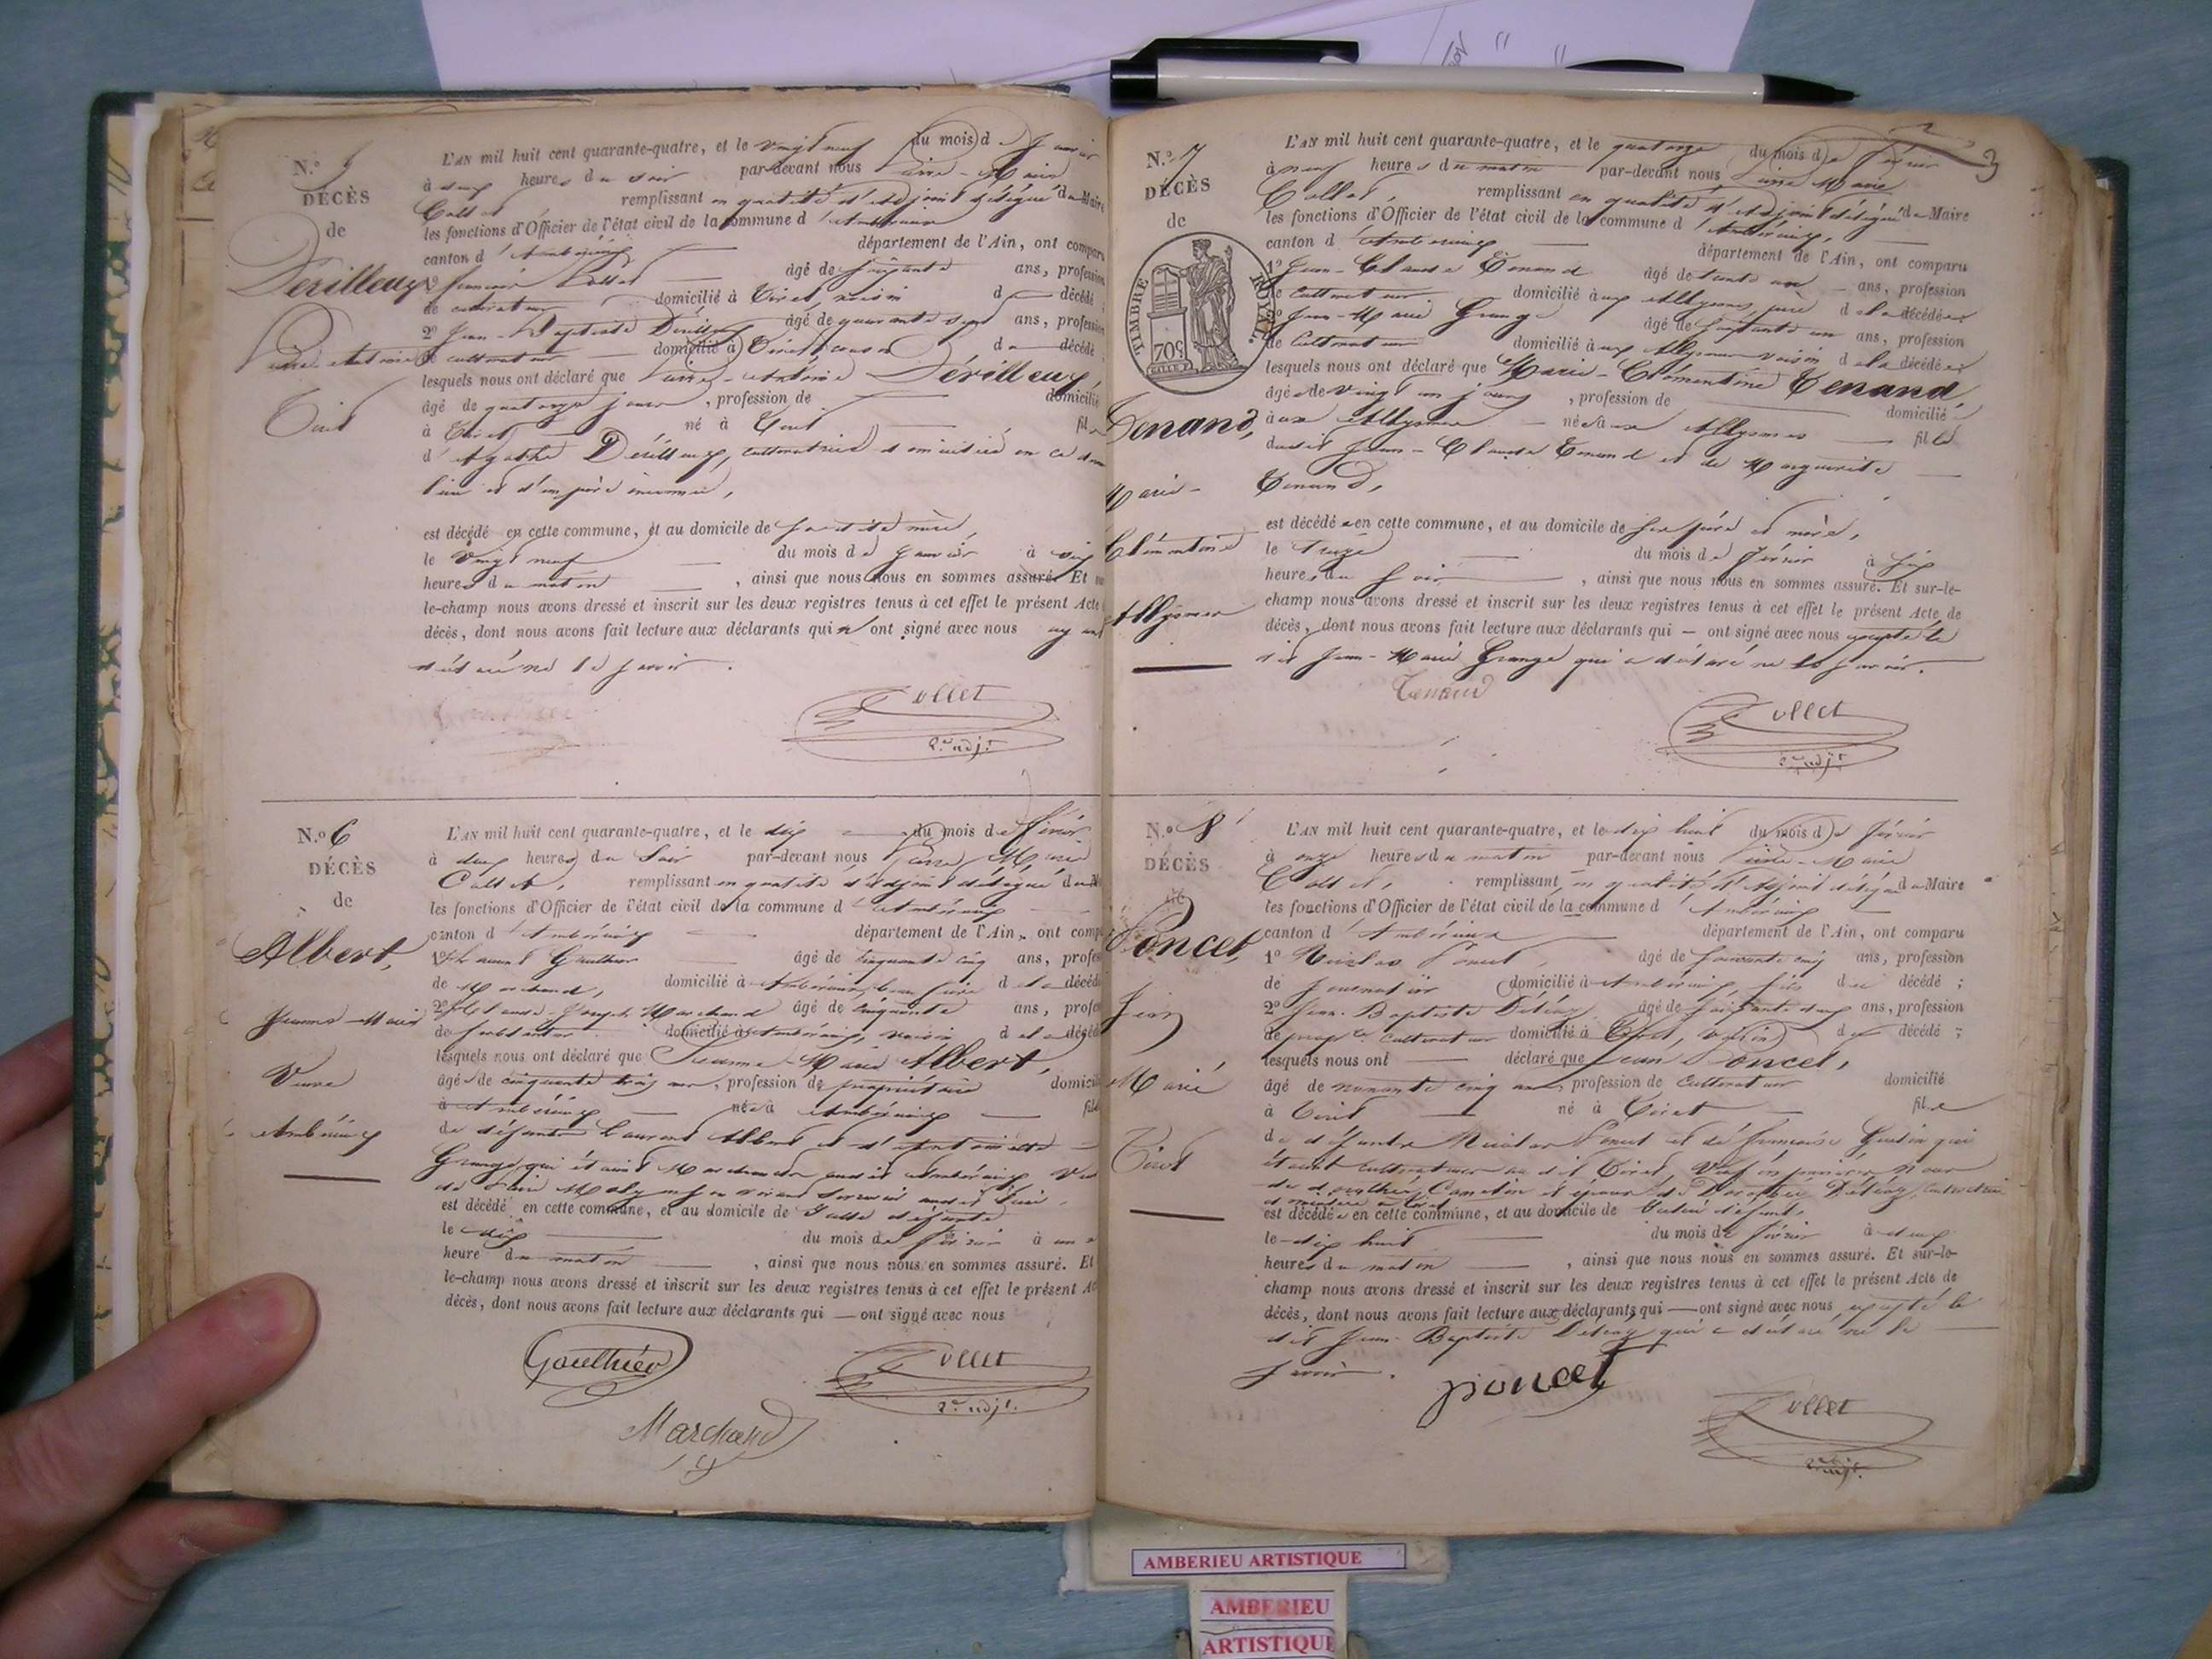 N.º 5
DÉCÈS
de
Dérilleux
Pierre Antoine
Tiret
L'AN mil huit cent quarante-quatre, et le vingt neuf du mois de Janvier
à heures du soir par-devant nous Pierre-Marie
Collet remplissant en qualité d'adjoint délégué du Maire
les fonctions d'Officier de l'état civil de la commune d'Ambérieux
canton d'Ambérieux département de l'Ain, ont comparu
1º françois Collet âgé de soixante ans, profession
de cultivateur domicilié à Tiret, voisin d décédé ;
2º Jean-Baptiste Dérilleux âgé de quarante sept ans, profession
de cultivateur domicilié à Tiret, cousin du décédé ;
lesquels nous ont déclaré que Pierre-Antoine Dérilleux,
âgé de quatorze jours, profession de domicilié
à Tiret né à Tiret fils
d'Agathe Dérilleux, cultivatrice domiciliée en ce dernier
lieu et d'un père inconnu,
est décédé en cette commune, et au domicile de sa dite mère,
le vingt neuf du mois de Janvier à
heures du matin, ainsi que nous nous en sommes assuré. Et
le-champ nous avons dressé et inscrit sur les deux registres tenus à cet effet le présent Acte
décès, dont nous avons fait lecture aux déclarants qui n'ont signé avec nous ayant
déclaré ne le savoir.
Collet
2e adjt.
N.º 6
DÉCÈS
de
Albert,
Jeanne-Marie
Veuve
Ambérieux
L'AN mil huit cent quarante-quatre, et le dix du mois de février
à deux heures du soir par-devant nous Pierre Marie
Collet, remplissant en qualité d'adjoint délégué du
les fonctions d'Officier de l'état civil de la commune d'Ambérieux
canton d'Ambérieux département de l'Ain, ont comp
1º Laurent Gaulthier âgé de cinquante cinq ans, profes
de Marchand, domicilié à Ambérieux, beau frère de la décédé
2º Claude-Joseph Marchand âgé de cinquante ans, profes
de domicilié à Ambérieux, voisin de la décédé
lesquels nous ont déclaré que Jeanne-Marie Albert,
âgée de cinquante trois ans, profession de propriétaire domicilié
à Ambérieux née à Ambérieux fille
de défunts Laurent Albert et d'Antoinette
Grange qui étaient Marchands audit Ambérieux
de
est décédé en cette commune, et au domicile de ladite défunte
le dix du mois de février à une
heure du matin, ainsi que nous nous en sommes assuré. Et
le-champ nous avons dressé et inscrit sur les deux registres tenus à cet effet le présent Ac
décès, dont nous avons fait lecture aux déclarants qui — ont signé avec nous
Gaulthier
Collet
2e adjt.
Marchand
3
N.º 7
DÉCÈS
de
TIMBRE ROYAL
70c
Tenand,
Marie-
Clémentine
Allymes
L'AN mil huit cent quarante-quatre, et le quatorze du mois de février
à neuf heures du matin par-devant nous Pierre Marie
Collet, remplissant en qualité d'adjoint délégué du Maire
les fonctions d'Officier de l'état civil de la commune d'Ambérieux,
canton d'Ambérieux département de l'Ain, ont comparu
1º Jean-Claude Tenand âgé de trente un ans, profession
de cultivateur domicilié aux Allymes, père de la décédée ;
2º Jean-Marie Grange âgé de soixante un ans, profession
de cultivateur domicilié aux Allymes voisin de la décédée ;
lesquels nous ont déclaré que Marie-Clémentine Tenand,
âgée de vingt un jours, profession de domicilié
aux Allymes née aux Allymes fille
dudit Jean-Claude Tenand et de Marguerite
Tenand,
est décédée en cette commune, et au domicile de ses père et mère,
le treize du mois de février à six
heures du soir, ainsi que nous nous en sommes assuré. Et sur-le-
champ nous avons dressé et inscrit sur les deux registres tenus à cet effet le présent Acte de
décès, dont nous avons fait lecture aux déclarants qui — ont signé avec nous excepté le
dit Jean-Marie Grange qui a déclaré ne le savoir.
Tenand
Collet
2e adjt.
N.º 8
DÉCÈS
de
Poncet,
Jean
Marié
Tiret
L'AN mil huit cent quarante-quatre, et le dix huit du mois de février
à onze heures du matin par-devant nous Pierre-Marie
Collet, remplissant en qualité d'adjoint délégué du Maire
les fonctions d'Officier de l'état civil de la commune d'Ambérieux
canton d'Ambérieux département de l'Ain, ont comparu
1º Nicolas Poncet, âgé de soixante cinq ans, profession
de journalier domicilié à Ambérieux, fils du décédé ;
2º Jean-Baptiste Détraz âgé de soixante deux ans, profession
de propre. cultivateur domicilié à Tiret, voisin du décédé ;
lesquels nous ont déclaré que Jean Poncet,
âgé de nonante cinq ans, profession de cultivateur domicilié
à Tiret né à Tiret fils
de défunts Nicolas Poncet et de françoise Gustin qui
étaient cultivateurs au dit Tiret, Veuf en première noces
de dorothée et époux de Détraz, cultivatrice
est décédé en cette commune, et au domicile de défunt,
le dix huit du mois de février à deux
heures du matin, ainsi que nous nous en sommes assuré. Et sur-le-
champ nous avons dressé et inscrit sur les deux registres tenus à cet effet le présent Acte de
décès, dont nous avons fait lecture aux déclarants qui — ont signé avec nous excepté le
dit Jean-Baptiste Détraz qui a déclaré ne le
savoir.
poncet
Collet
2e adjt.
AMBERIEU ARTISTIQUE
AMBERIEU
ARTISTIQUE